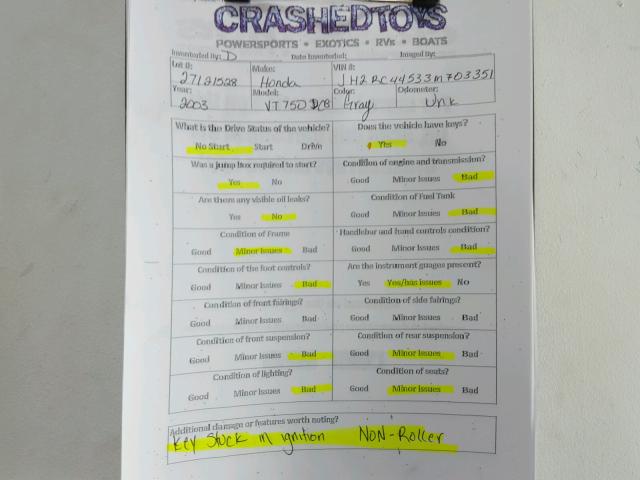 CRASHEDTOYS
POWERSPORTS • EXOTICS • RVs • BOATS
Inventoried By: D Date Inventoried: Imaged By:
Lot #: Make: VIN #:
27121528 Honda JH2RC44533M703351
Year: Model: Color: Odometer:
2003 VT750 Gray Unk
What is the Drive Status of the vehicle? Does the vehicle have keys?
No Start Start Drive Yes No
Was a jump box required to start? Condition of engine and transmission?
Yes No Good Minor Issues Bad
Are there any visible oil leaks? Condition of Fuel Tank
Yes No Good Minor Issues Bad
Condition of Frame Handlebar and hand controls condition?
Good Minor Issues Bad Good Minor Issues Bad
Condition of the foot controls? Are the instrument guages present?
Good Minor Issues Bad Yes Yes/has issues No
Condition of front fairings? Condition of side fairings?
Good Minor Issues Bad Good Minor Issues Bad
Condition of front suspension? Condition of rear suspension?
Good Minor Issues Bad Good Minor Issues Bad
Condition of lighting? Condition of seats?
Good Minor Issues Bad Good Minor Issues Bad
Additional damage or features worth noting?
Key Stuck in ignition NON-Roller